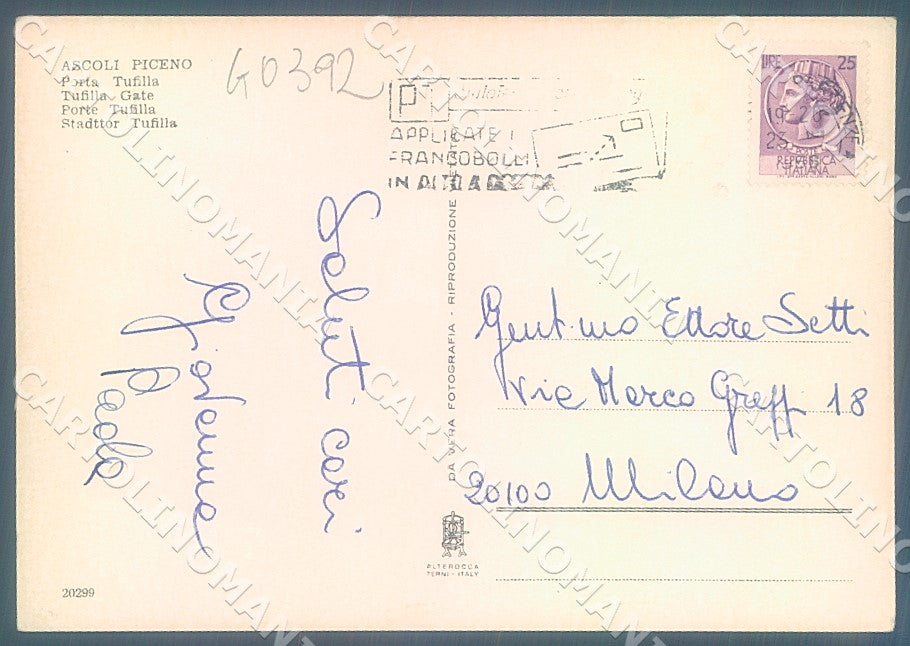 ASCOLI PICENO
Porta Tufilla
Tufilla Gate
Porte Tufilla
Stadttor Tufilla
G0392
APPLICATE I
FRANCOBOLLI
IN ALTO A DESTRA
LIRE 25
POSTE
REPUBBLICA
ITALIANA
Saluti cari
Giovanna
Paola
DA VERA FOTOGRAFIA - RIPRODUZIONE VIETATA
Gent.mo Ettore Setti
Via Marco Greppi 18
20100 Milano
ALTEROCCA
TERNI - ITALY
20299
CARTOLINOMANIA